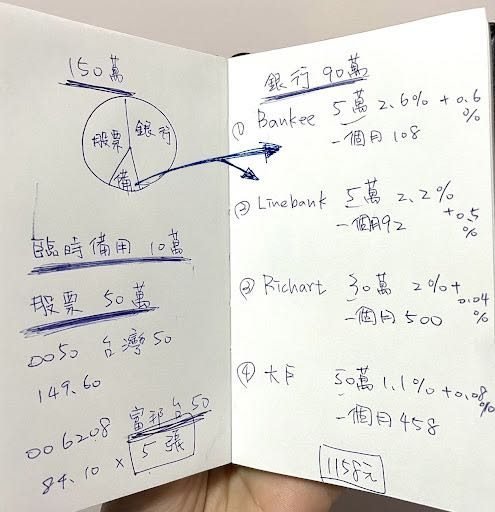 150萬
股票
銀行
備
臨時備用 10萬
股票 50萬
0050 台灣50
149.60
006208 富邦台50
84.10 × 5張
銀行 90萬
① Bankee 5萬 2.6% + 0.6%
一個月 108
② Linebank 5萬 2.2% +0.5%
一個月92
③ Richart 30萬 2% + 0.04%
一個月 500
④ 大戶 50萬 1.1% +0.08%
一個月 458
1158元